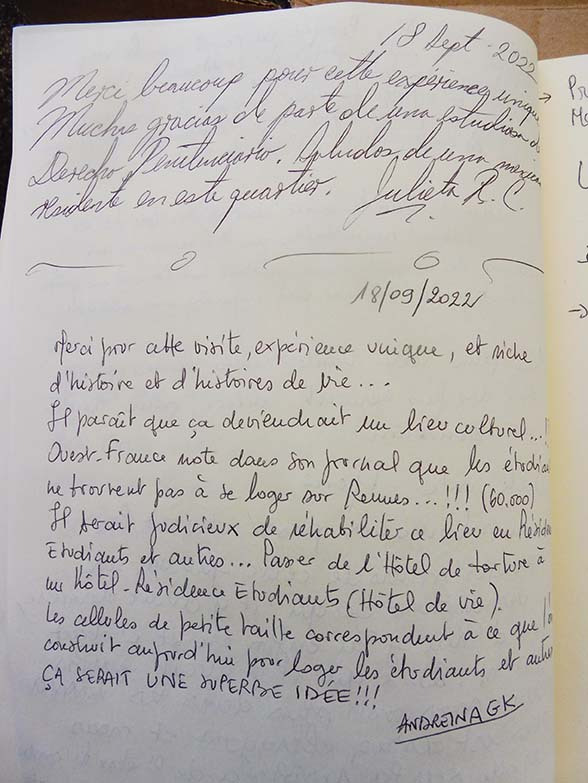 18 Sept. 2022
Merci beaucoup pour cette expérience unique
Muchas gracias de parte de una estudiosa de
Derecho Penitenciario. Saludos de una mexicana
residente en este quartier. Julieta R. C.
18/09/2022
Merci pour cette visite, expérience unique, et riche
d'histoire et d'histoires de vie...
Il paraît que ça deviendrait un lieu culturel...!!
Ouest-France note dans son journal que les étudian
ne trouvent pas à se loger sur Rennes...!!! (60.000)
Il serait judicieux de réhabiliter ce lieu en Réside
Etudiants et autres... Passer de l'Hôtel de torture à
un Hôtel-Résidence Etudiants (Hôtel de vie).
Les cellules de petite taille correspondent à ce que l'o
construit aujourd'hui pour loger les étudiants et autre
ÇA SERAIT UNE SUPERBE IDÉE!!!
ANDREINA GK
Pr